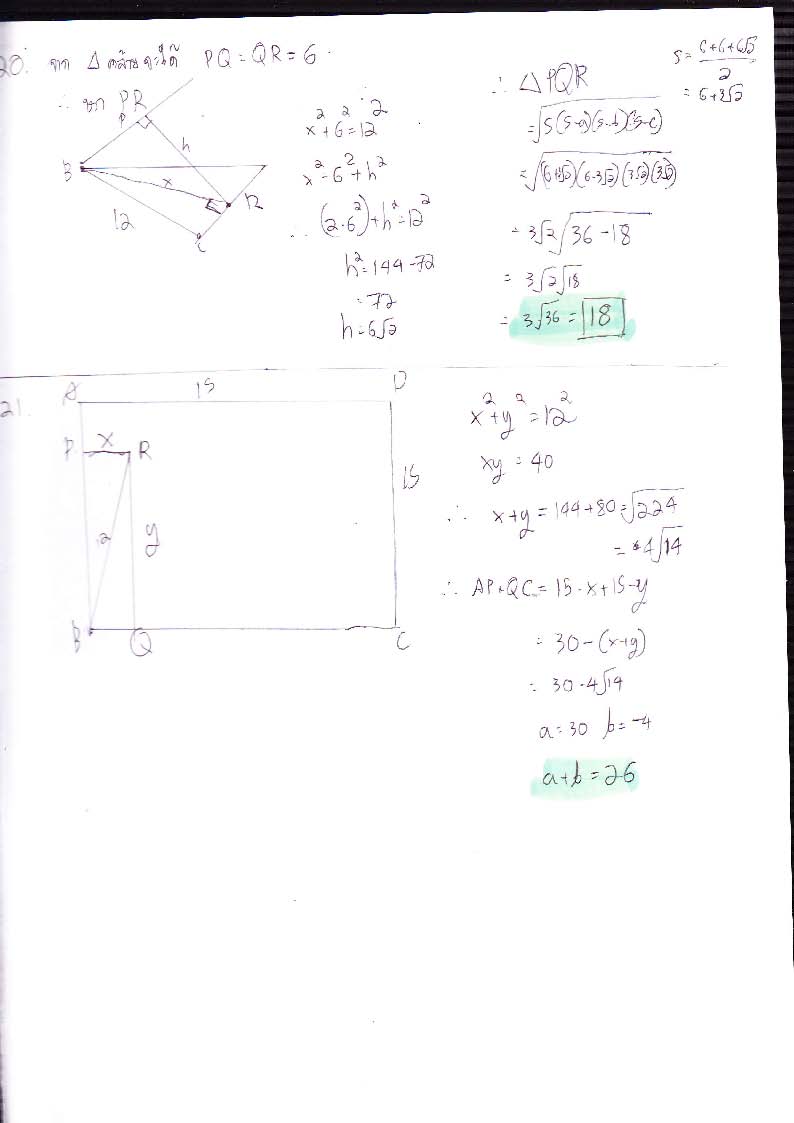 20. จาก Δ คล้ายจะได้ PQ = QR = 6
∴ หา PR
P
h
B
x
R
12
C
x² + 6² = 12²
x² = 6² + h²
∴ (2·6²) + h² = 12²
h² = 144 - 72
= 72
h = 6√2
∴ ΔPQR
= √S(S-a)(S-b)(S-c)
= √(6+3√2)(6-3√2)(3√2)(3√2)
= 3√2 √36 - 18
= 3√2 √18
= 3√36 = 18
S = 6+6+6√2
2
= 6+3√2
21.
A 15 D
P x R
15
12 y
B Q C
x² + y² = 12²
xy = 40
∴ x+y = 144+80 = √224
= 4√14
∴ AP+QC = 15-x+15-y
= 30-(x+y)
= 30-4√14
a = 30 b = -4
a+b = 26